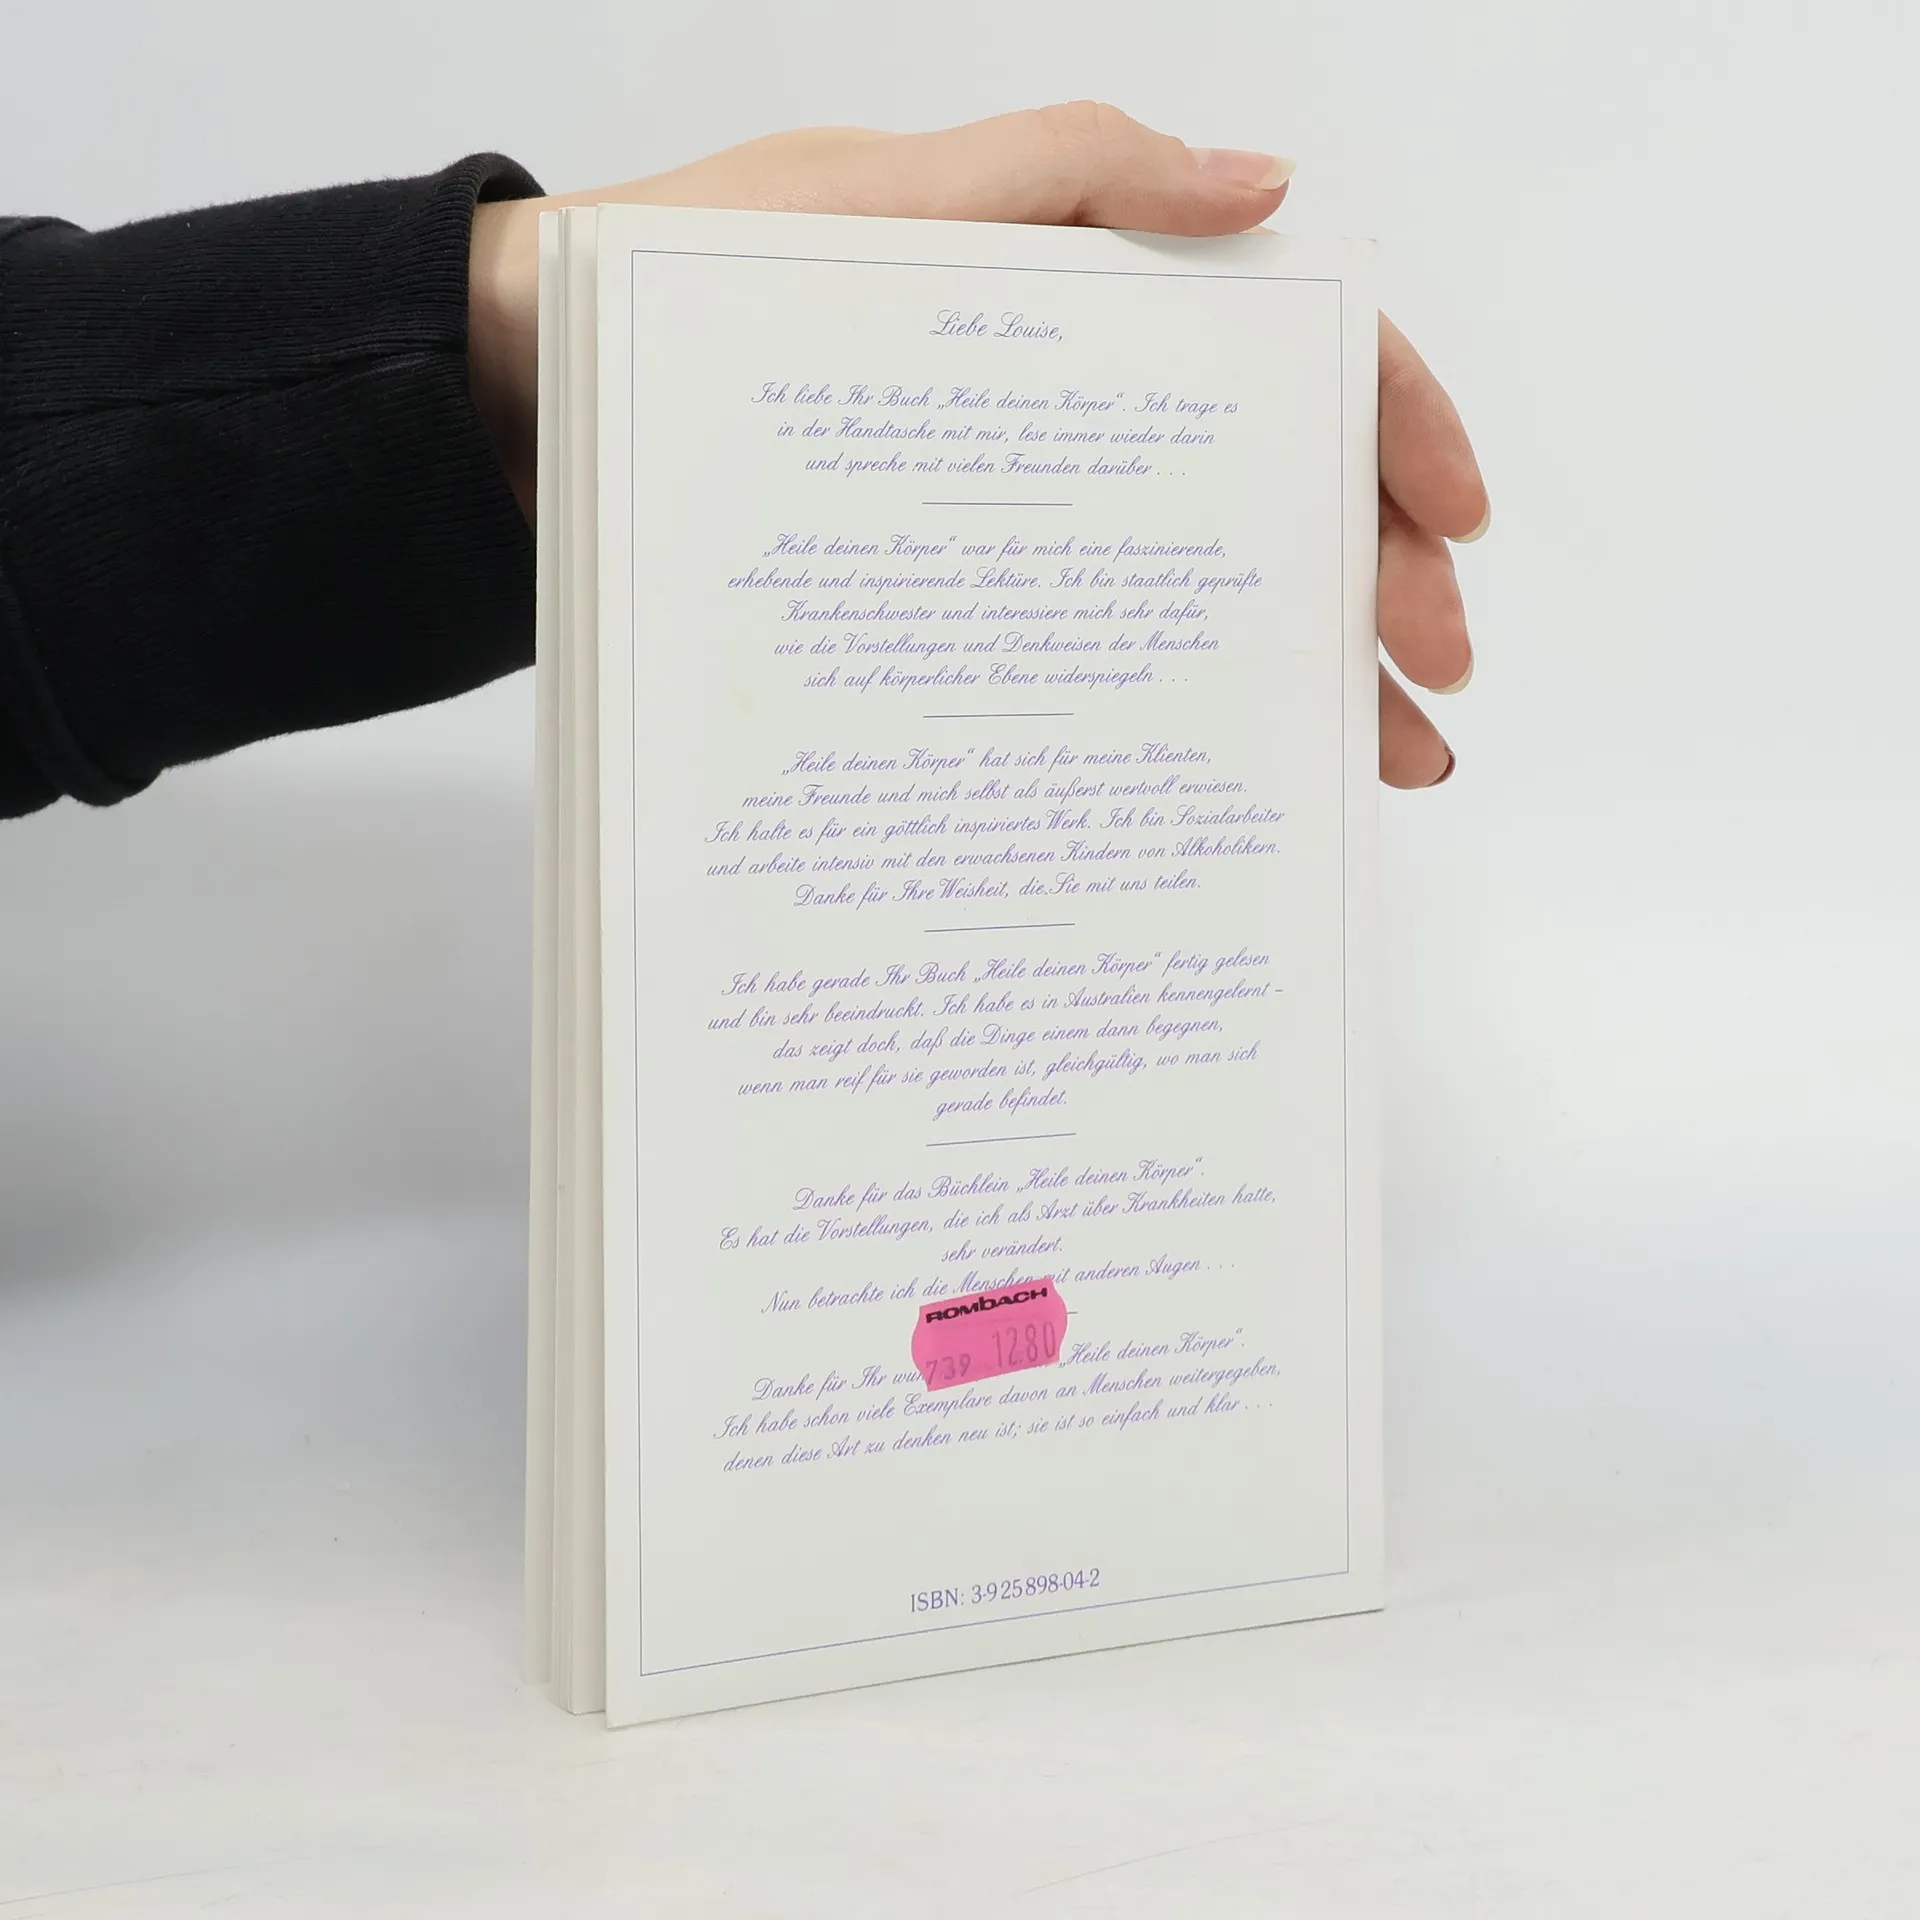 Liebe Louise,
Ich liebe Ihr Buch „Heile deinen Körper“. Ich trage es
in der Handtasche mit mir, lese immer wieder darin
und spreche mit vielen Freunden darüber . . .
„Heile deinen Körper“ war für mich eine faszinierende,
erhebende und inspirierende Lektüre. Ich bin staatlich geprüfte
Krankenschwester und interessiere mich sehr dafür,
wie die Vorstellungen und Denkweisen der Menschen
sich auf körperlicher Ebene widerspiegeln . . .
„Heile deinen Körper“ hat sich für meine Klienten,
meine Freunde und mich selbst als äußerst wertvoll erwiesen.
Ich halte es für ein göttlich inspiriertes Werk. Ich bin Sozialarbeiter
und arbeite intensiv mit den erwachsenen Kindern von Alkoholikern.
Danke für Ihre Weisheit, die Sie mit uns teilen.
Ich habe gerade Ihr Buch „Heile deinen Körper“ fertig gelesen
und bin sehr beeindruckt. Ich habe es in Australien kennengelernt –
das zeigt doch, daß die Dinge einem dann begegnen,
wenn man reif für sie geworden ist, gleichgültig, wo man sich
gerade befindet.
Danke für das Büchlein „Heile deinen Körper“.
Es hat die Vorstellungen, die ich als Arzt über Krankheiten hatte,
sehr verändert.
Nun betrachte ich die Menschen mit anderen Augen . . .
ROMBACH
739 1280
Danke für Ihr „Heile deinen Körper“.
Ich habe schon viele Exemplare davon an Menschen weitergegeben,
denen diese Art zu denken neu ist; sie ist so einfach und klar . . .
ISBN: 3-925898-04-2